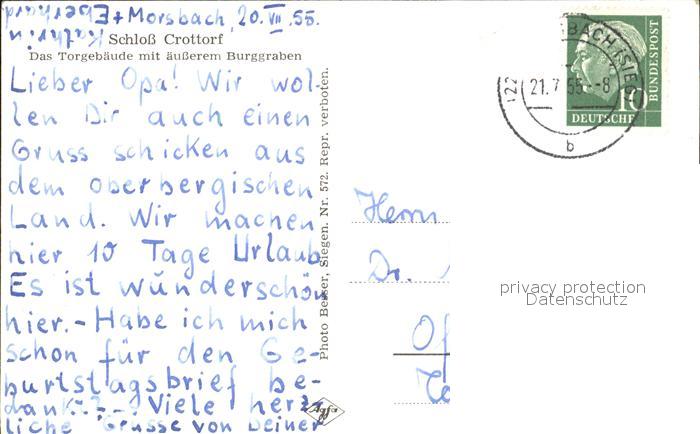 Morsbach, 20. VII. 55.
Schloß Crottorf
Das Torgebäude mit äußerem Burggraben
Lieber Opa! Wir wol-
len Dir auch einen
Gruss schicken aus
dem oberbergischen
Land. Wir machen
hier 10 Tage Urlaub
Es ist wunderschön
hier. - Habe ich mich
schon für den Ge-
burtstagsbrief be-
dankt? - Viele herz-
liche Grüsse von Deiner
Kathrin
+ Eberhard
Photo Besser, Siegen. Nr. 572. Repr. verboten.
Agfa
BACH (SIEG
(22
21.7.55.-8
b
10
DEUTSCHE
BUNDESPOST
Herrn
Dr.
privacy protection
Datenschutz